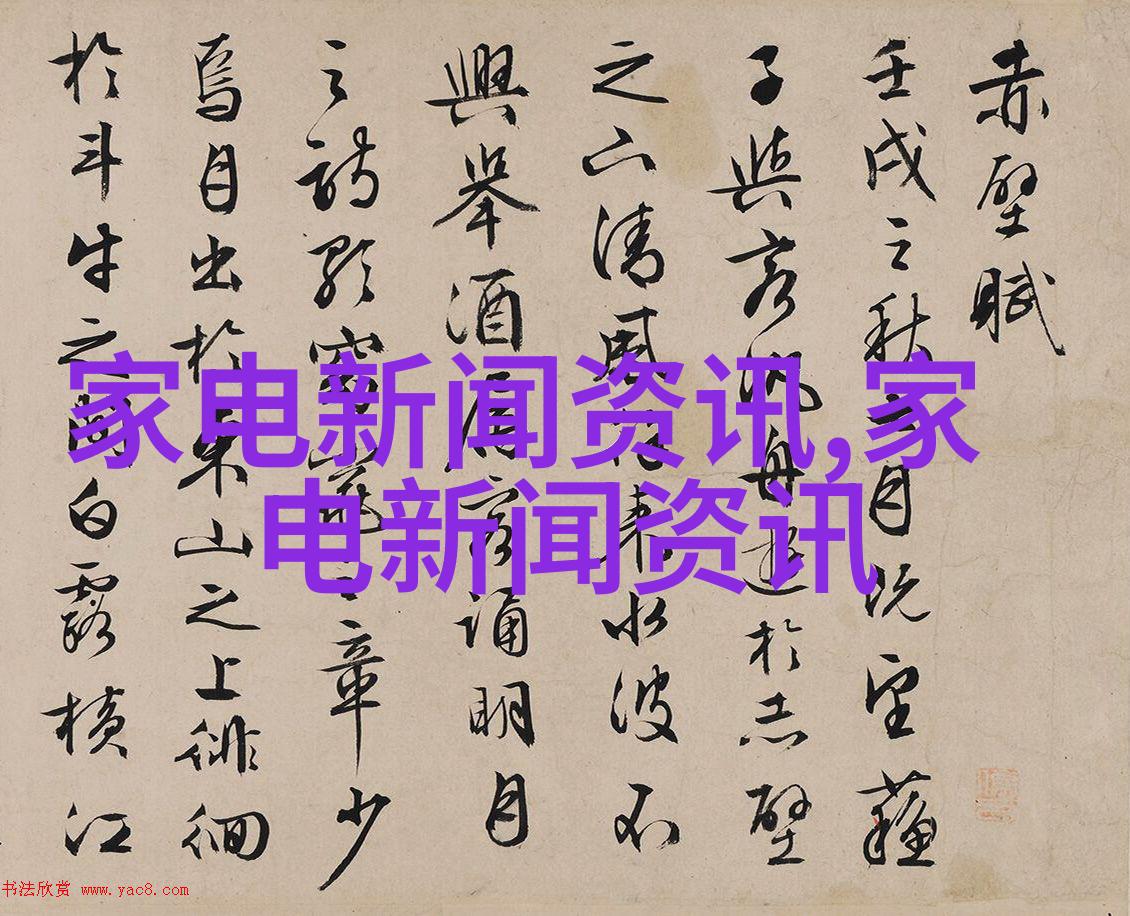 赤壁賦
壬戌之秋七月既望蘇
子與客泛舟遊於赤壁
之下清風徐來水波不
興舉酒屬客誦明月
之詩歌窈窕之章少
焉月出於東山之上徘徊
於斗牛之間白露橫江
家电新闻资讯,家
电新闻资讯
书法欣赏 www.yac8.com